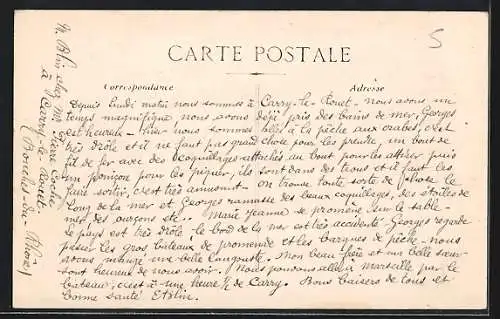 5
CARTE POSTALE
Correspondance
Adresse
Depuis lundi matin nous sommes à Carry-le-Rouet - nous avons un
temps magnifique, nous avons déjà pris des bains de mer, Georges
est heureux - hier nous sommes allés à la pêche aux crabes, c'est
très drôle et il ne faut pas grand chose pour les prendre, un bout de
fil de fer avec des coquillages attachés au bout pour les attirer puis
un poinçon pour les piquer, ils sont dans des trous et il faut les
faire sortir, c'est très amusant - on trouve toute sorte de chose le
long de la mer et Georges ramasse des beaux coquillages, des étoiles de
mer des ourçons etc.. Marie Jeanne se promène sur le sable -
Le pays est très drôle - le bord de la mer est très accidenté. Georges regarde
passer les gros bateaux de promenade et les barques de pêche - nous
avons mangé une belle langouste. Mon beau frère et ma belle sœur
sont heureux de nous avoir. Nous pouvons aller à Marseille par le
bateau, c'est à une heure ½ de Carry. Bons baisers de tous et
bonne santé
M. Blin chez Mr Pierre
à Carry-le-Rouet
(Bouches-du-Rhône)